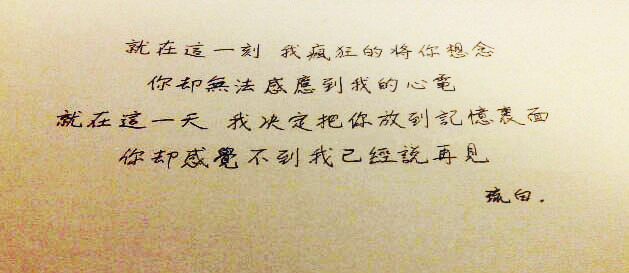 就在這一刻 我瘋狂的將你想念
你却無法感應到我的心電
就在這一天 我决定把你放到記憶裏面
你却感覺不到我已經說再見
琉白.